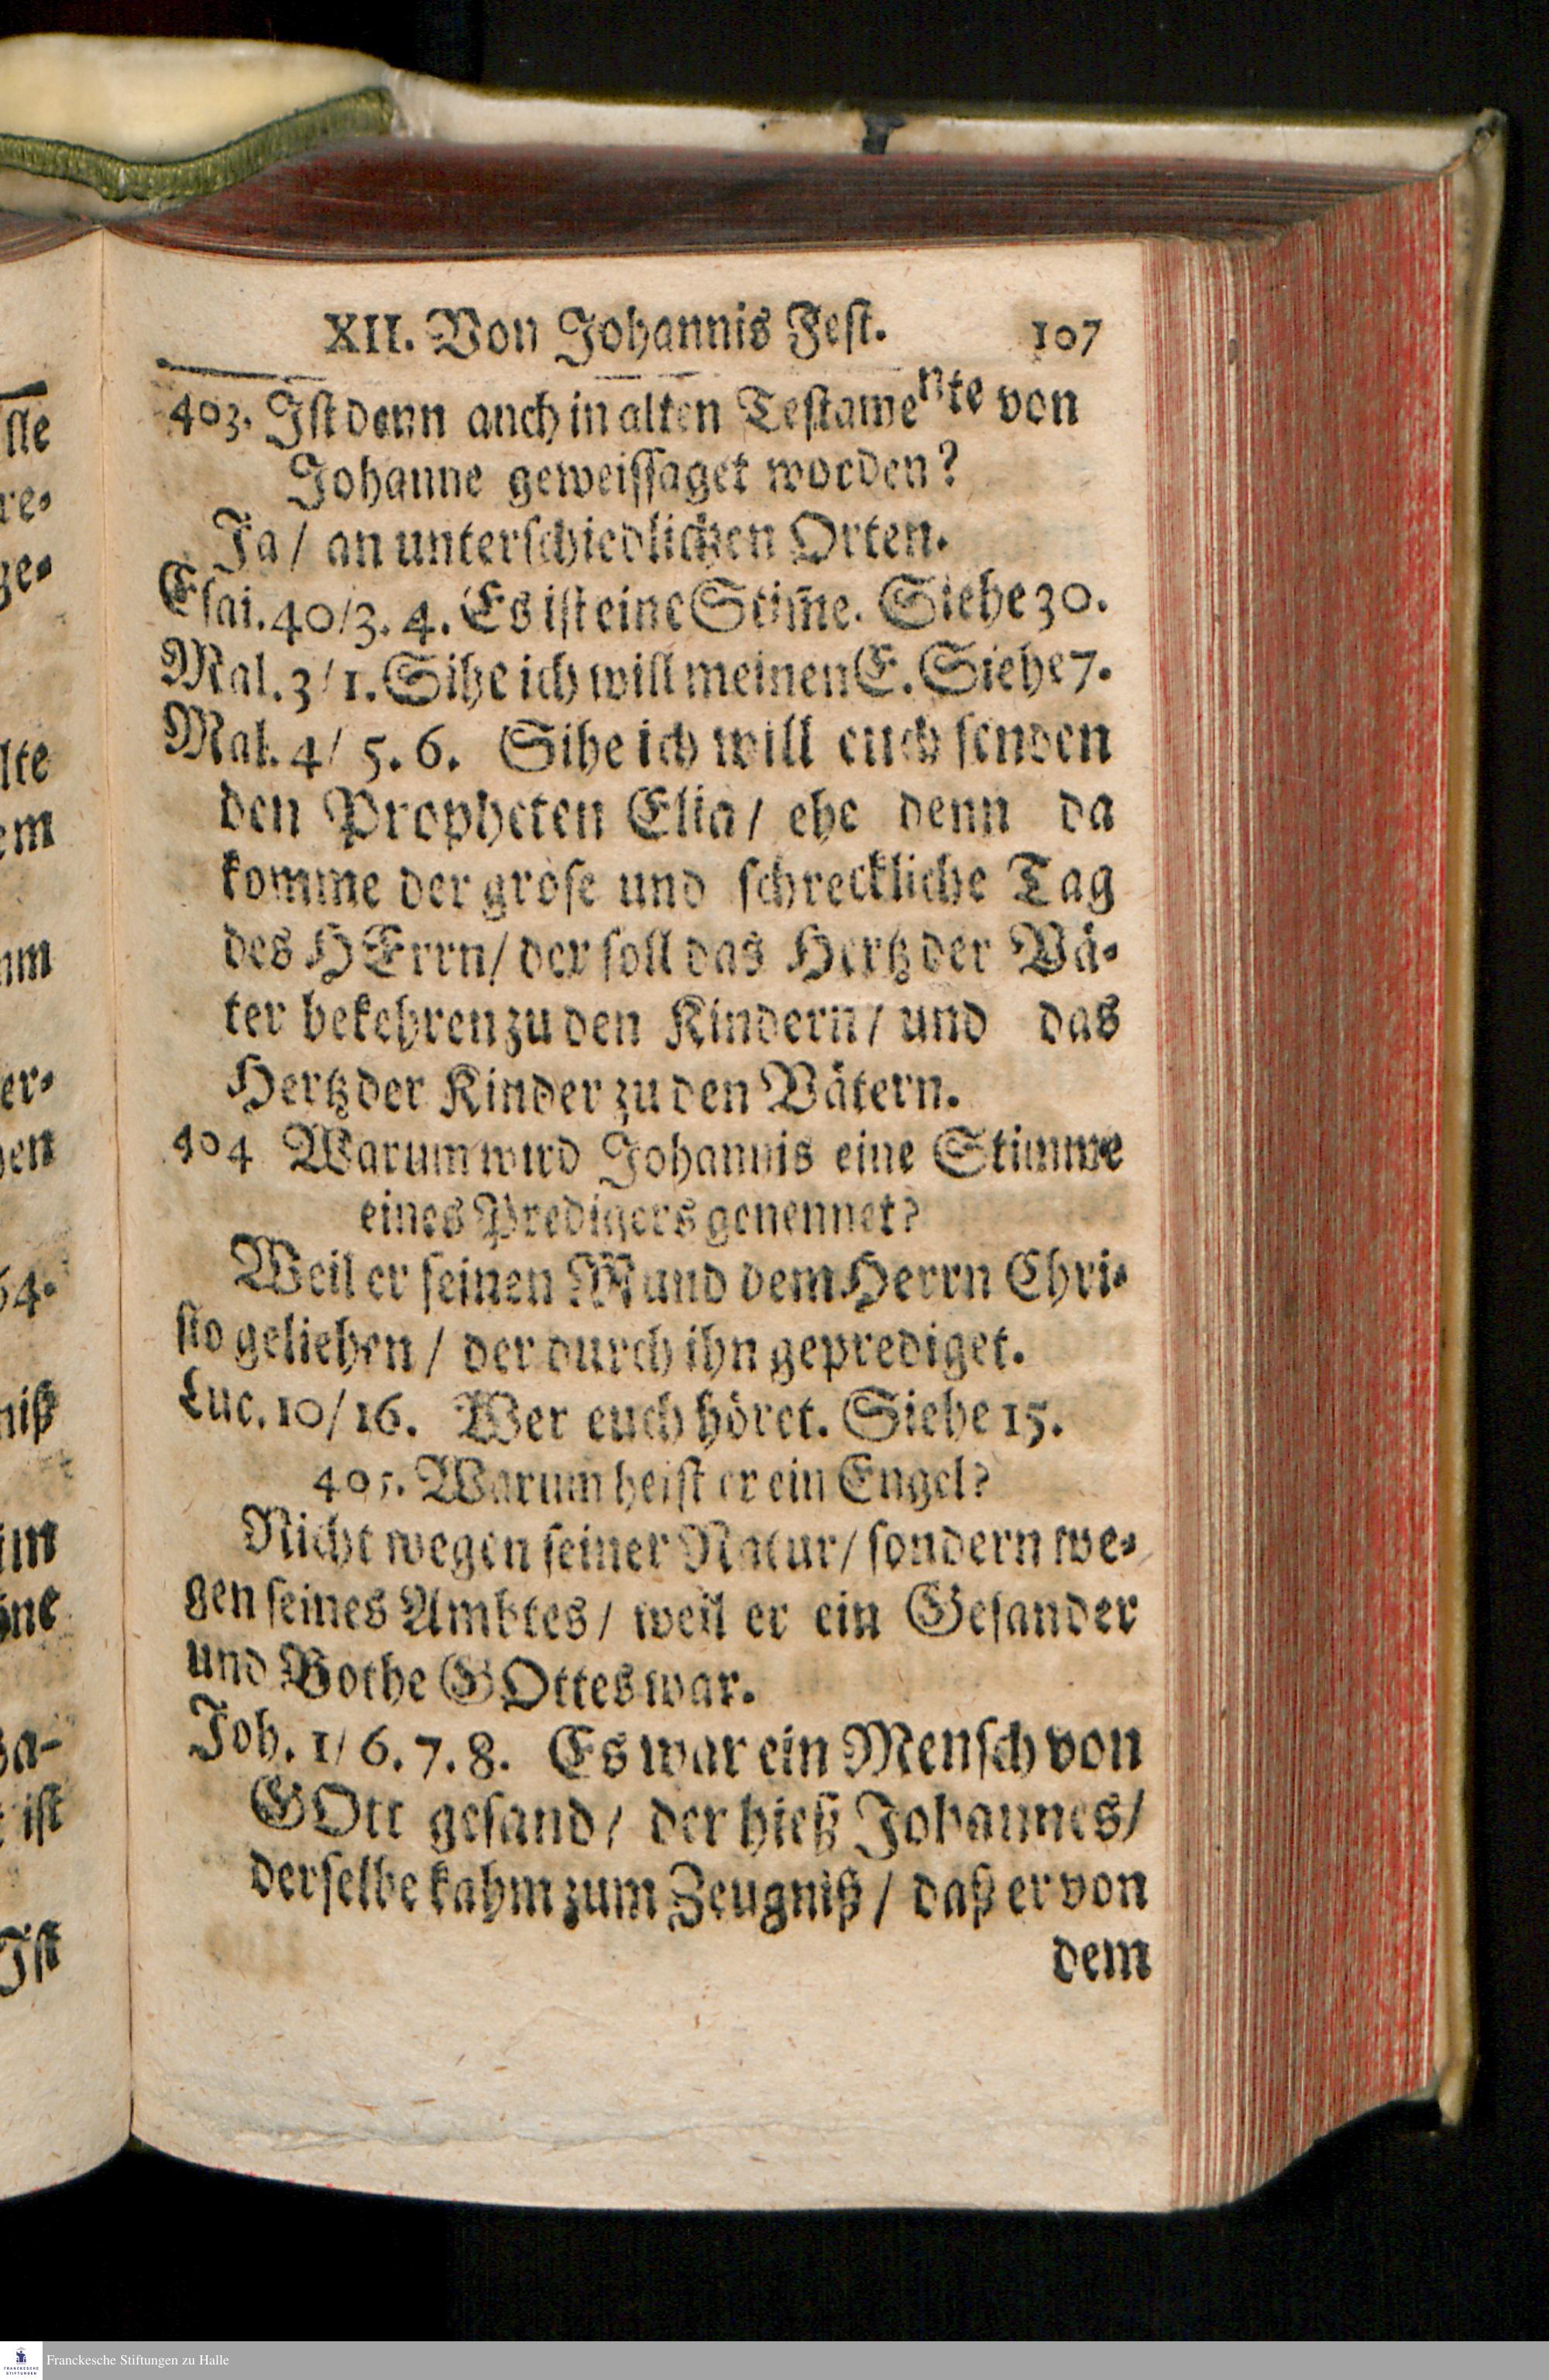 XII. Von Johannis Fest. 107
403. Ist denn auch in alten Testamente von
Johanne geweissaget worden?
Ja / an unterschiedlichen Orten.
Esai. 40/3. 4. Es ist eine Stim̃e. Siehe 30.
Mal. 3/1. Sihe ich will meinen E. Siehe 7.
Mal. 4/ 5. 6. Sihe ich will euch senden
den Propheten Elia / ehe denn da
komme der grose und schreckliche Tag
des HErrn / der soll das Hertz der Vä-
ter bekehren zu den Kindern / und das
Hertz der Kinder zu den Vätern.
404 Warum wird Johannis eine Stimme
eines Predigers genennet?
Weil er seinen Mund dem Herrn Chri-
sto geliehen / der durch ihn geprediget.
Luc. 10/16. Wer euch höret. Siehe 15.
405. Warum heist er ein Engel?
Nicht wegen seiner Natur / sondern we-
gen seines Ambtes / weil er ein Gesander
und Bothe GOttes war.
Joh. 1/ 6. 7. 8. Es war ein Mensch von
GOtt gesand / der hieß Johannes /
derselbe kahm zum Zeugniß / daß er von
dem
lle
re-
ge-
lte
em
er-
64.
niß
ist
Ist
Franckesche Stiftungen zu Halle